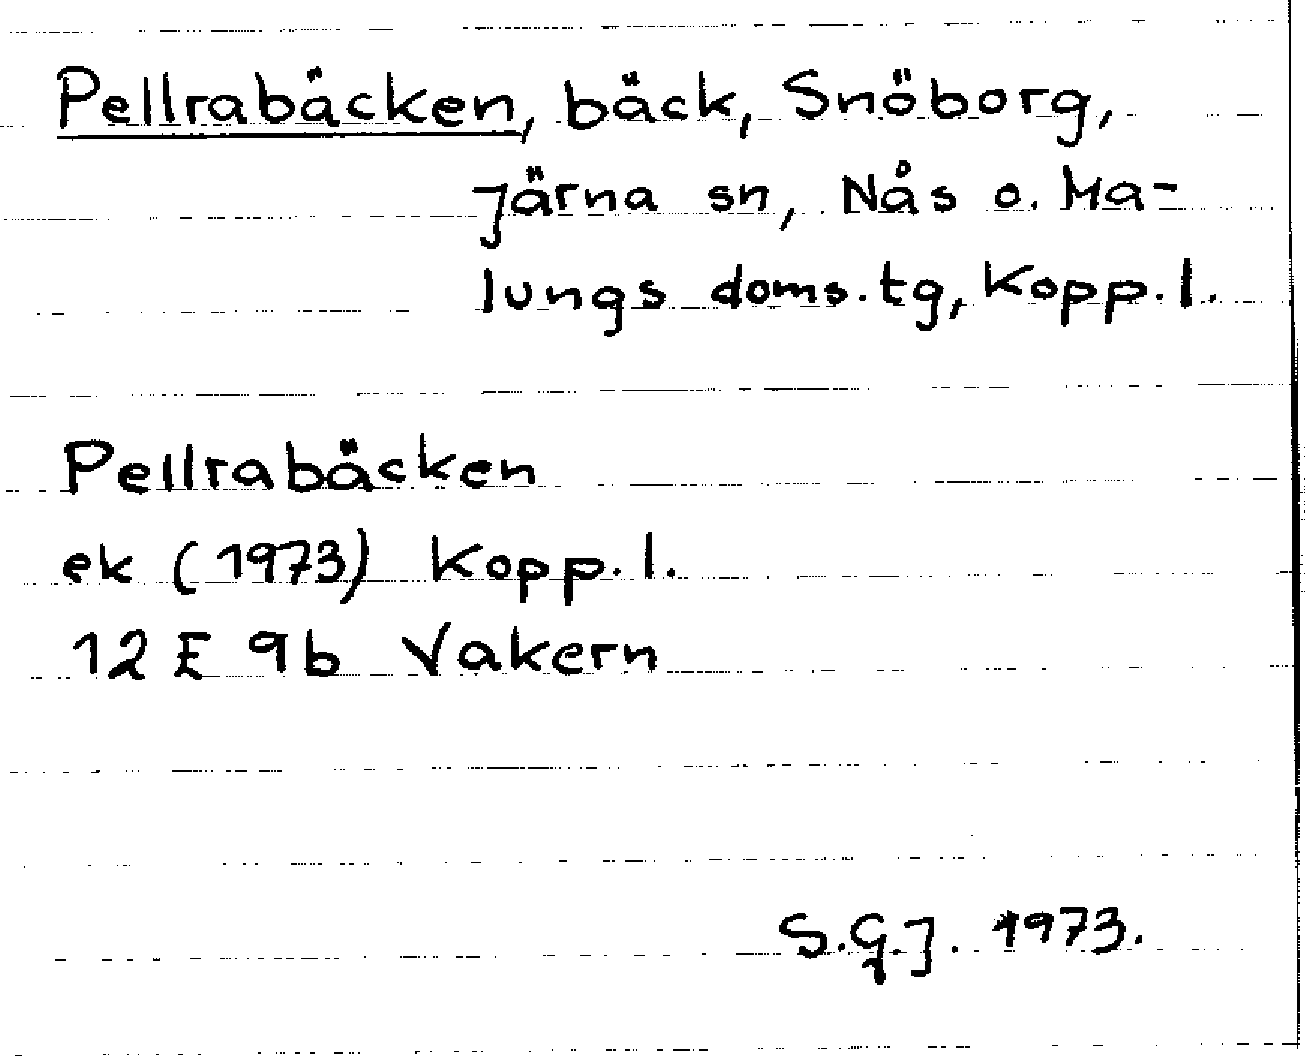 Pellrabäcken, bäck, Snöborg,
Järna sn, Nås o. Ma-
lungs doms.tg, Kopp.l.
Pellrabäcken
ek (1973) Kopp.l.
12 E 9b Vakern
S.G.J. 1973.